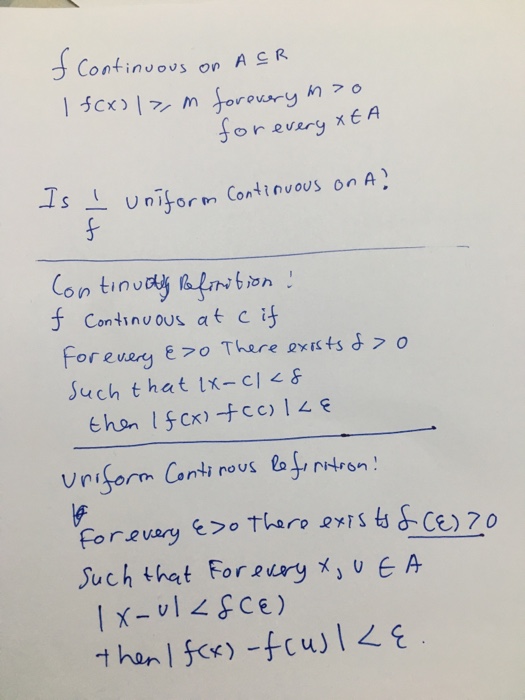 f Continuous on A ⊆ R
|f(x)| ≥ m forevery m > 0
for every x ∈ A
Is 1/f Uniform Continuous on A?
Continuity Definition :
f Continuous at c if
For every ε>0 There exists δ > 0
Such that |x-c| < δ
then |f(x)-f(c)| < ε
Uniform Continous Definition:
For every ε>0 there exists δ(ε)>0
Such that For every x, u ∈ A
|x-u| < δ(ε)
then |f(x)-f(u)| < ε.